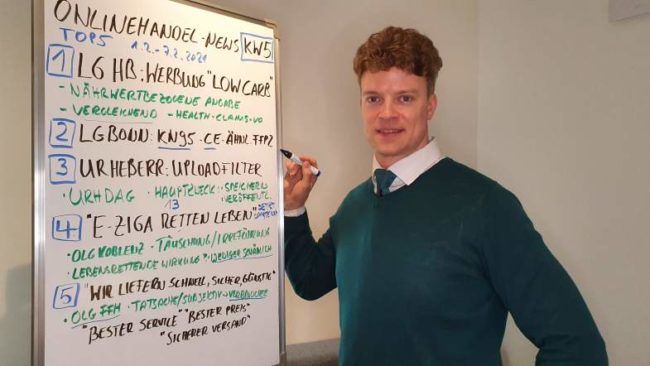 ONLINEHANDEL-NEWS
TOP5 1.2.-7.2.2021 KW5
1 LG HB: WERBUNG "LOW CARB"
- NÄHRWERTBEZOGENE ANGABE
- VERGLEICHEND - HEALTH-CLAIMS-VO
2 LG BONN: KN95-CE-ÄHNL. FFP2
3 URHEBERR.: UPLOADFILTER
URHDAG · HAUPTZWECK: SPEICHERN
13 VERÖFFENTL.
4 "E-ZIGA RETTEN LEBEN"
· OLG KOBLENZ · TÄUSCHUNG/IRREFÜHRUNG
· LEBENSRETTENDE WIRKUNG ° WENIGER SCHÄDLICH
5 "WIR LIEFERN SCHNELL, SICHER, GÜNSTIG"
· OLG FFM · TATSACHE/SUBJEKTIV → VERBRAUCHER
"BESTER SERVICE" "BESTER PREIS"
"SICHERER VERSAND"